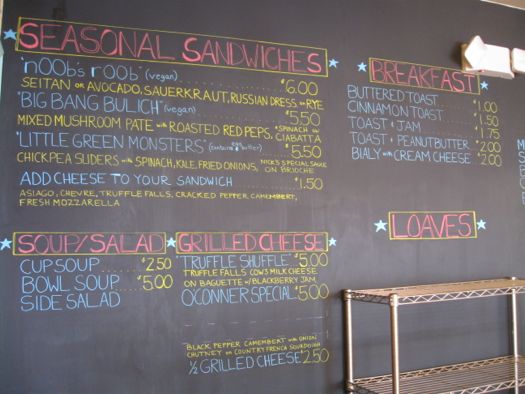 SEASONAL SANDWICHES
"n00b's r00b" (vegan) $6.00
SEITAN OR AVOCADO, SAUERKRAUT, RUSSIAN DRESS. ON RYE
"BIG BANG BULICH" (vegan) $5.50
MIXED MUSHROOM PATE WITH ROASTED RED PEPS, SPINACH ON CIABATTA
"LITTLE GREEN MONSTERS" $5.50
CHICKPEA SLIDERS WITH SPINACH, KALE, FRIED ONIONS, NICK'S SPECIAL SAUCE ON BRIOCHE
ADD CHEESE TO YOUR SANDWICH $1.50
ASIAGO, CHEVRE, TRUFFLE FALLS, CRACKED PEPPER CAMEMBERT,
FRESH MOZZARELLA
SOUP/SALAD
CUP SOUP $2.50
BOWL SOUP $5.00
SIDE SALAD
GRILLED CHEESE
"TRUFFLE SHUFFLE" $5.00
TRUFFLE FALLS COWS MILK CHEESE
ON BAGUETTE W/BLACKBERRY JAM
O'CONNER SPECIAL $5.00
BLACK PEPPER CAMEMBERT WITH ONION
CHUTNEY ON COUNTRY FRENCH SOURDOUGH
½ GRILLED CHEESE $2.50
BREAKFAST
BUTTERED TOAST $1.00
CINNAMON TOAST $1.50
TOAST + JAM $1.75
TOAST + PEANUTBUTTER $2.00
BIALY WITH CREAM CHEESE $2.00
LOAVES